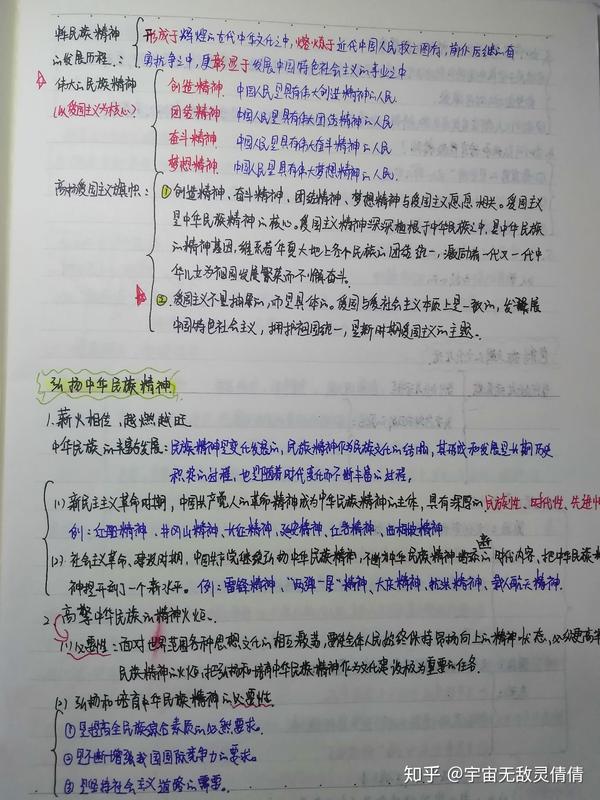 中华民族精神 形成于辉煌的古代中华文化之中,熔炼于近代中国人民救亡图存,前仆后继的奋
的发展历程: 勇抗争之中,更彰显于发展中国特色社会主义的事业之中
伟大的民族精神 创造精神 中国人民是具有伟大创造精神的人民
(以爱国主义为核心) 团结精神 中国人民是具有伟大团结精神的人民
奋斗精神 中国人民是具有伟大奋斗精神的人民
梦想精神 中国人民是具有伟大梦想精神的人民
高扬爱国主义旗帜: ①创造精神、奋斗精神、团结精神、梦想精神与爱国主义息息相关。爱国主义
是中华民族精神的核心。爱国主义精神深深植根于中华民族之中,是中华民族
的精神基因,维系着华夏大地上各个民族的团结统一,激励着一代又一代中
华儿女为祖国发展繁荣而不懈奋斗。
②爱国主义不是抽象的,而是具体的。爱国与爱社会主义本质上是一致的,发展
中国特色社会主义,拥护祖国统一,是新时期爱国主义的主题。
弘扬中华民族精神
1.薪火相传,越燃越旺
中华民族的丰富发展:民族精神是变化发展的,民族精神作为民族文化的结晶,其形成和发展是长期历史
积淀的过程,也是随着时代变化而不断丰富的过程。
(1)新民主主义革命时期,中国共产党人的革命精神成为中华民族精神的主体,具有深厚的民族性、时代性、先进性
例:红船精神、井冈山精神、长征精神、延安精神、红岩精神、西柏坡精神
(2)社会主义革命、建设时期,中国共产党继续弘扬中华民族精神,不断为中华民族精神增添新的时代内容,把中华民族精
神提升到了一个新水平。例:雷锋精神、"两弹一星"精神、大庆精神、抗洪精神、载人航天精神.
2.高擎中华民族的精神火炬.
(1)必要性:面对世界范围各种思想文化的相互激荡,要使全体人民始终保持昂扬向上的精神状态,必须更高举
民族精神的火炬,把弘扬和培育中华民族精神作为文化建设极为重要的任务.
(2)弘扬和培育中华民族精神的必要性.
①是提高全民族综合素质的必然要求.
②是不断增强我国国际竞争力的要求。
③是坚持社会主义道路的需要。
知乎 @宇宙无敌灵倩倩